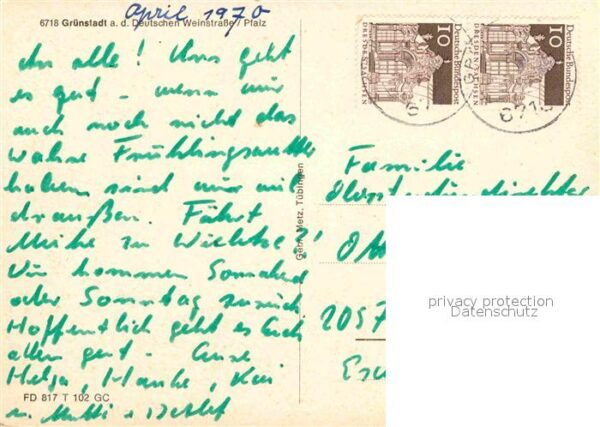 April 1970
6718 Grünstadt a. d. Deutschen Weinstraße / Pfalz
An alle! Uns geht
es gut - wenn wir
auch noch nicht das
wahre Frühlingswetter
haben sind wir viel
draußen. Fährt
Meike zu Wiebke?!
Wir kommen Sonnabend
oder Sonntag zurück
Hoffentlich geht es Euch
allen gut - Eure
Helga, Hauke, Kai
u. Mutti + Detlef
FD 817 T 102 GC
Gebr. Metz, Tübingen
Deutsche Bundespost
10
DRESDEN
Deutsche Bundespost
10
DRESDEN
671
Familie
2057
privacy protection
Datenschutz